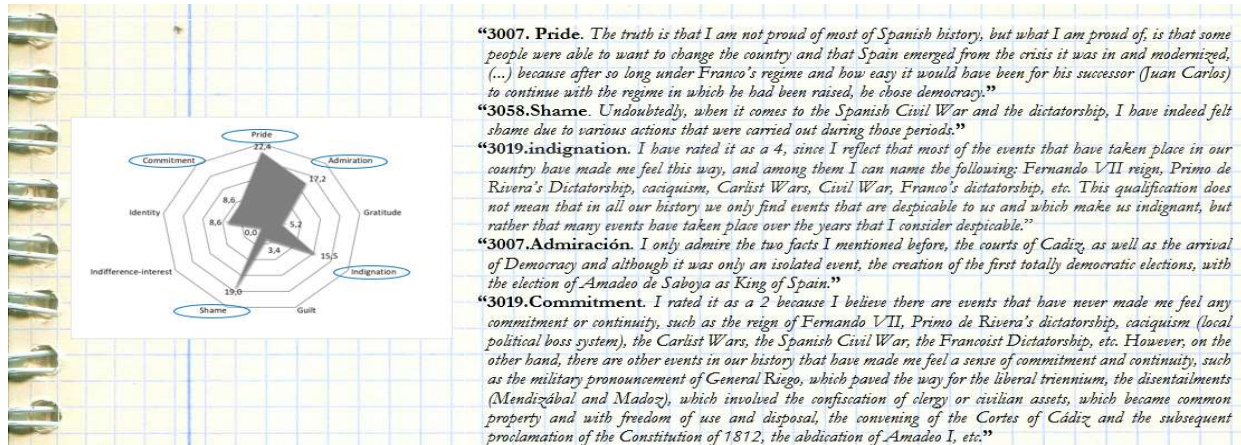 Pride
22,4
Commitment
Admiration
17,2
8,6
Identity
Gratitude
8,6
5,2
0,0
3,4
15,5
Indifference-interest
Indignation
19,0
Shame
Guilt
“3007. Pride. The truth is that I am not proud of most of Spanish history, but what I am proud of, is that some
people were able to want to change the country and that Spain emerged from the crisis it was in and modernized,
(...) because after so long under Franco’s regime and how easy it would have been for his successor (Juan Carlos)
to continue with the regime in which he had been raised, he chose democracy.”
“3058.Shame. Undoubtedly, when it comes to the Spanish Civil War and the dictatorship, I have indeed felt
shame due to various actions that were carried out during those periods.”
“3019.indignation. I have rated it as a 4, since I reflect that most of the events that have taken place in our
country have made me feel this way, and among them I can name the following: Fernando VII reign, Primo de
Rivera’s Dictatorship, caciquism, Carlist Wars, Civil War, Franco’s dictatorship, etc. This qualification does
not mean that in all our history we only find events that are despicable to us and which make us indignant, but
rather that many events have taken place over the years that I consider despicable.”
“3007.Admiración. I only admire the two facts I mentioned before, the courts of Cadiz, as well as the arrival
of Democracy and although it was only an isolated event, the creation of the first totally democratic elections, with
the election of Amadeo de Saboya as King of Spain.”
“3019.Commitment. I rated it as a 2 because I believe there are events that have never made me feel any
commitment or continuity, such as the reign of Fernando VII, Primo de Rivera’s dictatorship, caciquism (local
political boss system), the Carlist Wars, the Spanish Civil War, the Francoist Dictatorship, etc. However, on the
other hand, there are other events in our history that have made me feel a sense of commitment and continuity, such
as the military pronouncement of General Riego, which paved the way for the liberal triennium, the disentailments
(Mendizábal and Madoz), which involved the confiscation of clergy or civilian assets, which became common
property and with freedom of use and disposal, the convening of the Cortes of Cádiz and the subsequent
proclamation of the Constitution of 1812, the abdication of Amadeo I, etc.”